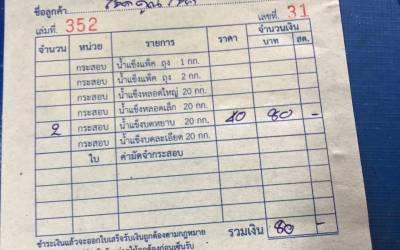 ชื่อลูกค้า
เล่มที่ 352 เลขที่ 31
จำนวน หน่วย รายการ ราคา จำนวนเงิน
บาท สต.
กระสอบ น้ำแข็งแพ็ค ถุง 1 กก.
กระสอบ น้ำแข็งแพ็ค ถุง 2 กก.
กระสอบ น้ำแข็งหลอดใหญ่ 20 กก.
กระสอบ น้ำแข็งหลอดเล็ก 20 กก.
2 กระสอบ น้ำแข็งบดหยาบ 20 กก. 40 80 -
กระสอบ น้ำแข็งบดละเอียด 20 กก.
ใบ ค่ามัดจำกระสอบ
รวมเงิน 80 -
ชำระเงินแล้วจะออกใบเสร็จรับเงินถูกต้องตามกฎหมาย